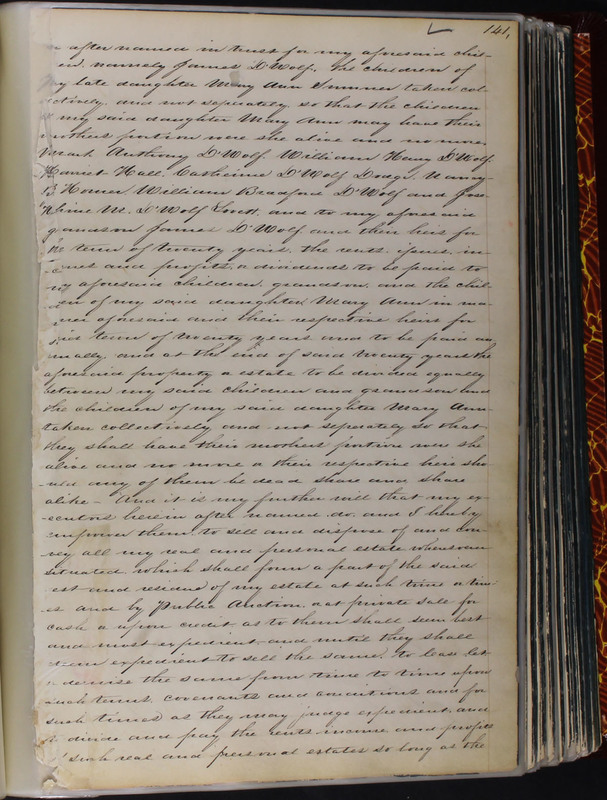 141,
in after named in trust for my aforesaid chil-
en, namely James D'Wolf, the children of
my late daughter Mary Ann Sumner taken col-
ectively, and not seperately so that the children
of my said daughter Mary Ann may have their
mothers portion were she alive and no more
Anthony D'Wolf, William Henry D'Wolf,
Harriet Hall, Catherine D'Wolf Dodge, Nancy
B. Homer, William Bradford D'Wolf and Jose-
phine M. D'Wolf Lovett, and to my aforesaid
grandson James D'Wolf and their heirs for
the term of twenty years, the rents, issues, in-
and profits, a dividends to be paid to
my aforesaid children, grandson, and the chil-
en of my said daughter Mary Ann in ma-
ner aforesaid and their respective heirs for
said term of twenty years and to be paid an
nually, and at the end of said twenty years the
aforesaid property a estate to be divided equally
between my said children and grandson and
the children of my said daughter Mary Ann
taken collectively and not seperately so that
they shall have their mothers' portion were she
alive and no more a their respective heirs sho-
uld any of them be dead share and share
alike - And it is my further will that my ex-
-ecutors herein after named do, and I hereby
empower them, to sell and dispose of and con-
vey all my real and personal estate wheresoever
situated which shall form a part of the said
est and residue of my estate at such time or tim-
es and by Public Auction, or at private sale for
cash or upon credit as to them shall seem best
and most expedient, and until they shall
seem expedient to sell the same, to lease let
demise the same from time to time upon
such terms, covenants and conditions and for
such times as they may judge expedient, and
to divide and pay the rents income and profits
such real and personal estates so long as the